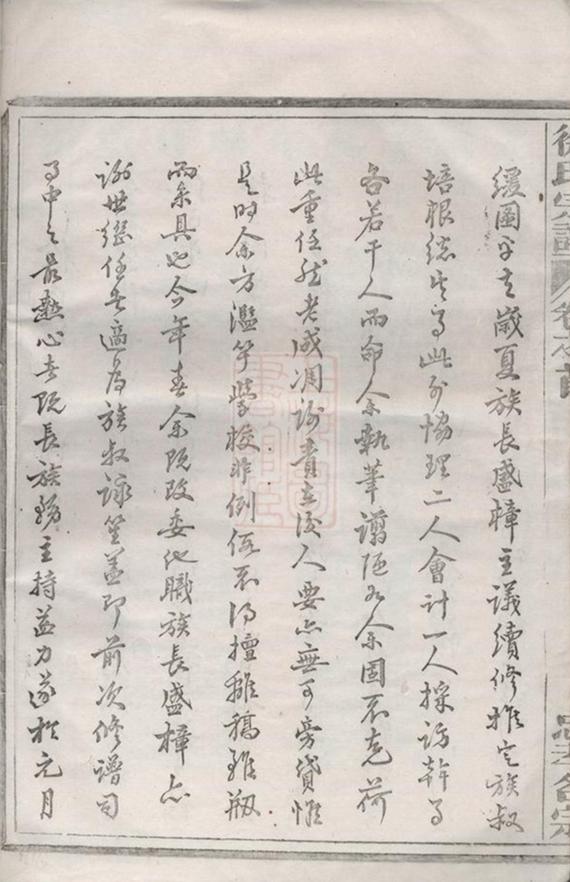 緩圖乎去歲夏族長盛樟主議續修推定族叔
培根總其事此外協理二人會計一人採訪幹事
各若干人而命余執筆謭陋如余固不克荷
此重任然老成凋謝責在後人要亦無可旁貸惟
是時余方濫竽學校非例假不得擅離稿雖剏
而未具也今年春余既改委他職族長盛樟亦
謝世繼任者適為族叔詠笙蓋即前次修譜司
事中之最熱心者既長族務主持益力遂於元月
徐氏宗譜 卷之首